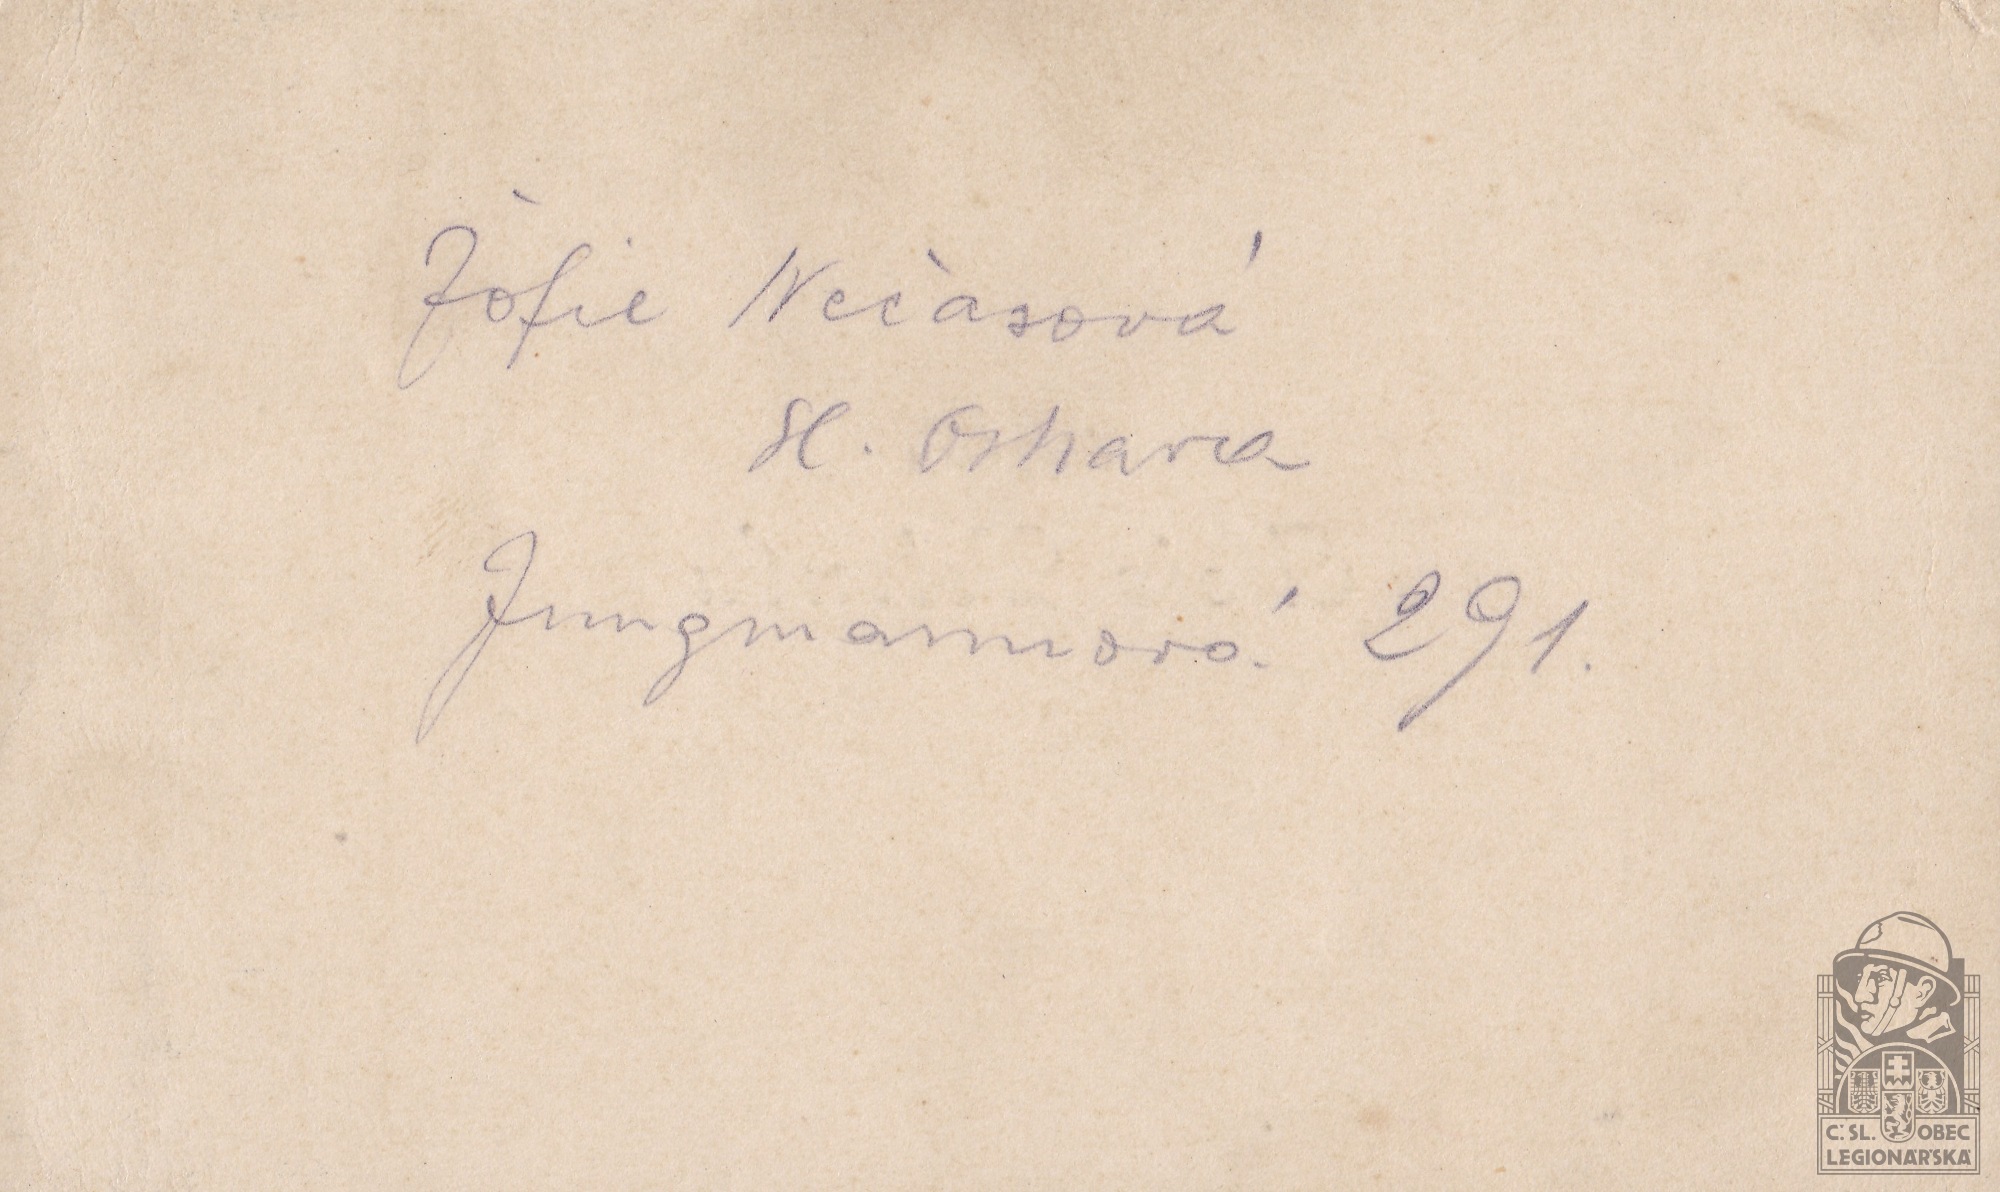 Žofie Nečasová
Sl. Ostrava
Jungmannová 291.
Č. SL. OBEC
LEGIONÁŘSKÁ